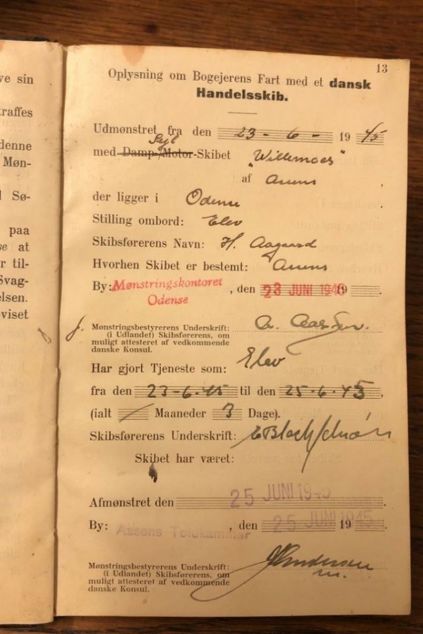 ve sin
raffes
denne
Møn-
l Sø-
paa
se at
r til-
Svag-
elsen.
oviset
13
Oplysning om Bogejerens Fart med et dansk
Handelsskib.
Udmønstret fra den 23 - 6 - 1945
Sejl
med Damp-, Motor-Skibet „Willemoes"
af Assens
der ligger i Odense
Stilling ombord: Elev
Skibsførerens Navn: H. Aagaard
Hvorhen Skibet er bestemt: Assens
By: Mønstringskontoret , den 23 JUNI 1945 19 .
Odense
Mønstringsbestyrerens Underskrift:
(i Udlandet) Skibsførerens, om
muligt attesteret af vedkommende
danske Konsul.
Har gjort Tjeneste som: Elev
fra den 23-6-45 til den 25-6-45,
(ialt / Maaneder 3 Dage).
Skibsførerens Underskrift:
Skibet har været:
Afmønstret den 25 JUNI 1945 .
By: Assens Toldkammer , den 25 JUNI 1945 19 .
Mønstringsbestyrerens Underskrift:
(i Udlandet) Skibsførerens, om
muligt attesteret af vedkommende
danske Konsul.